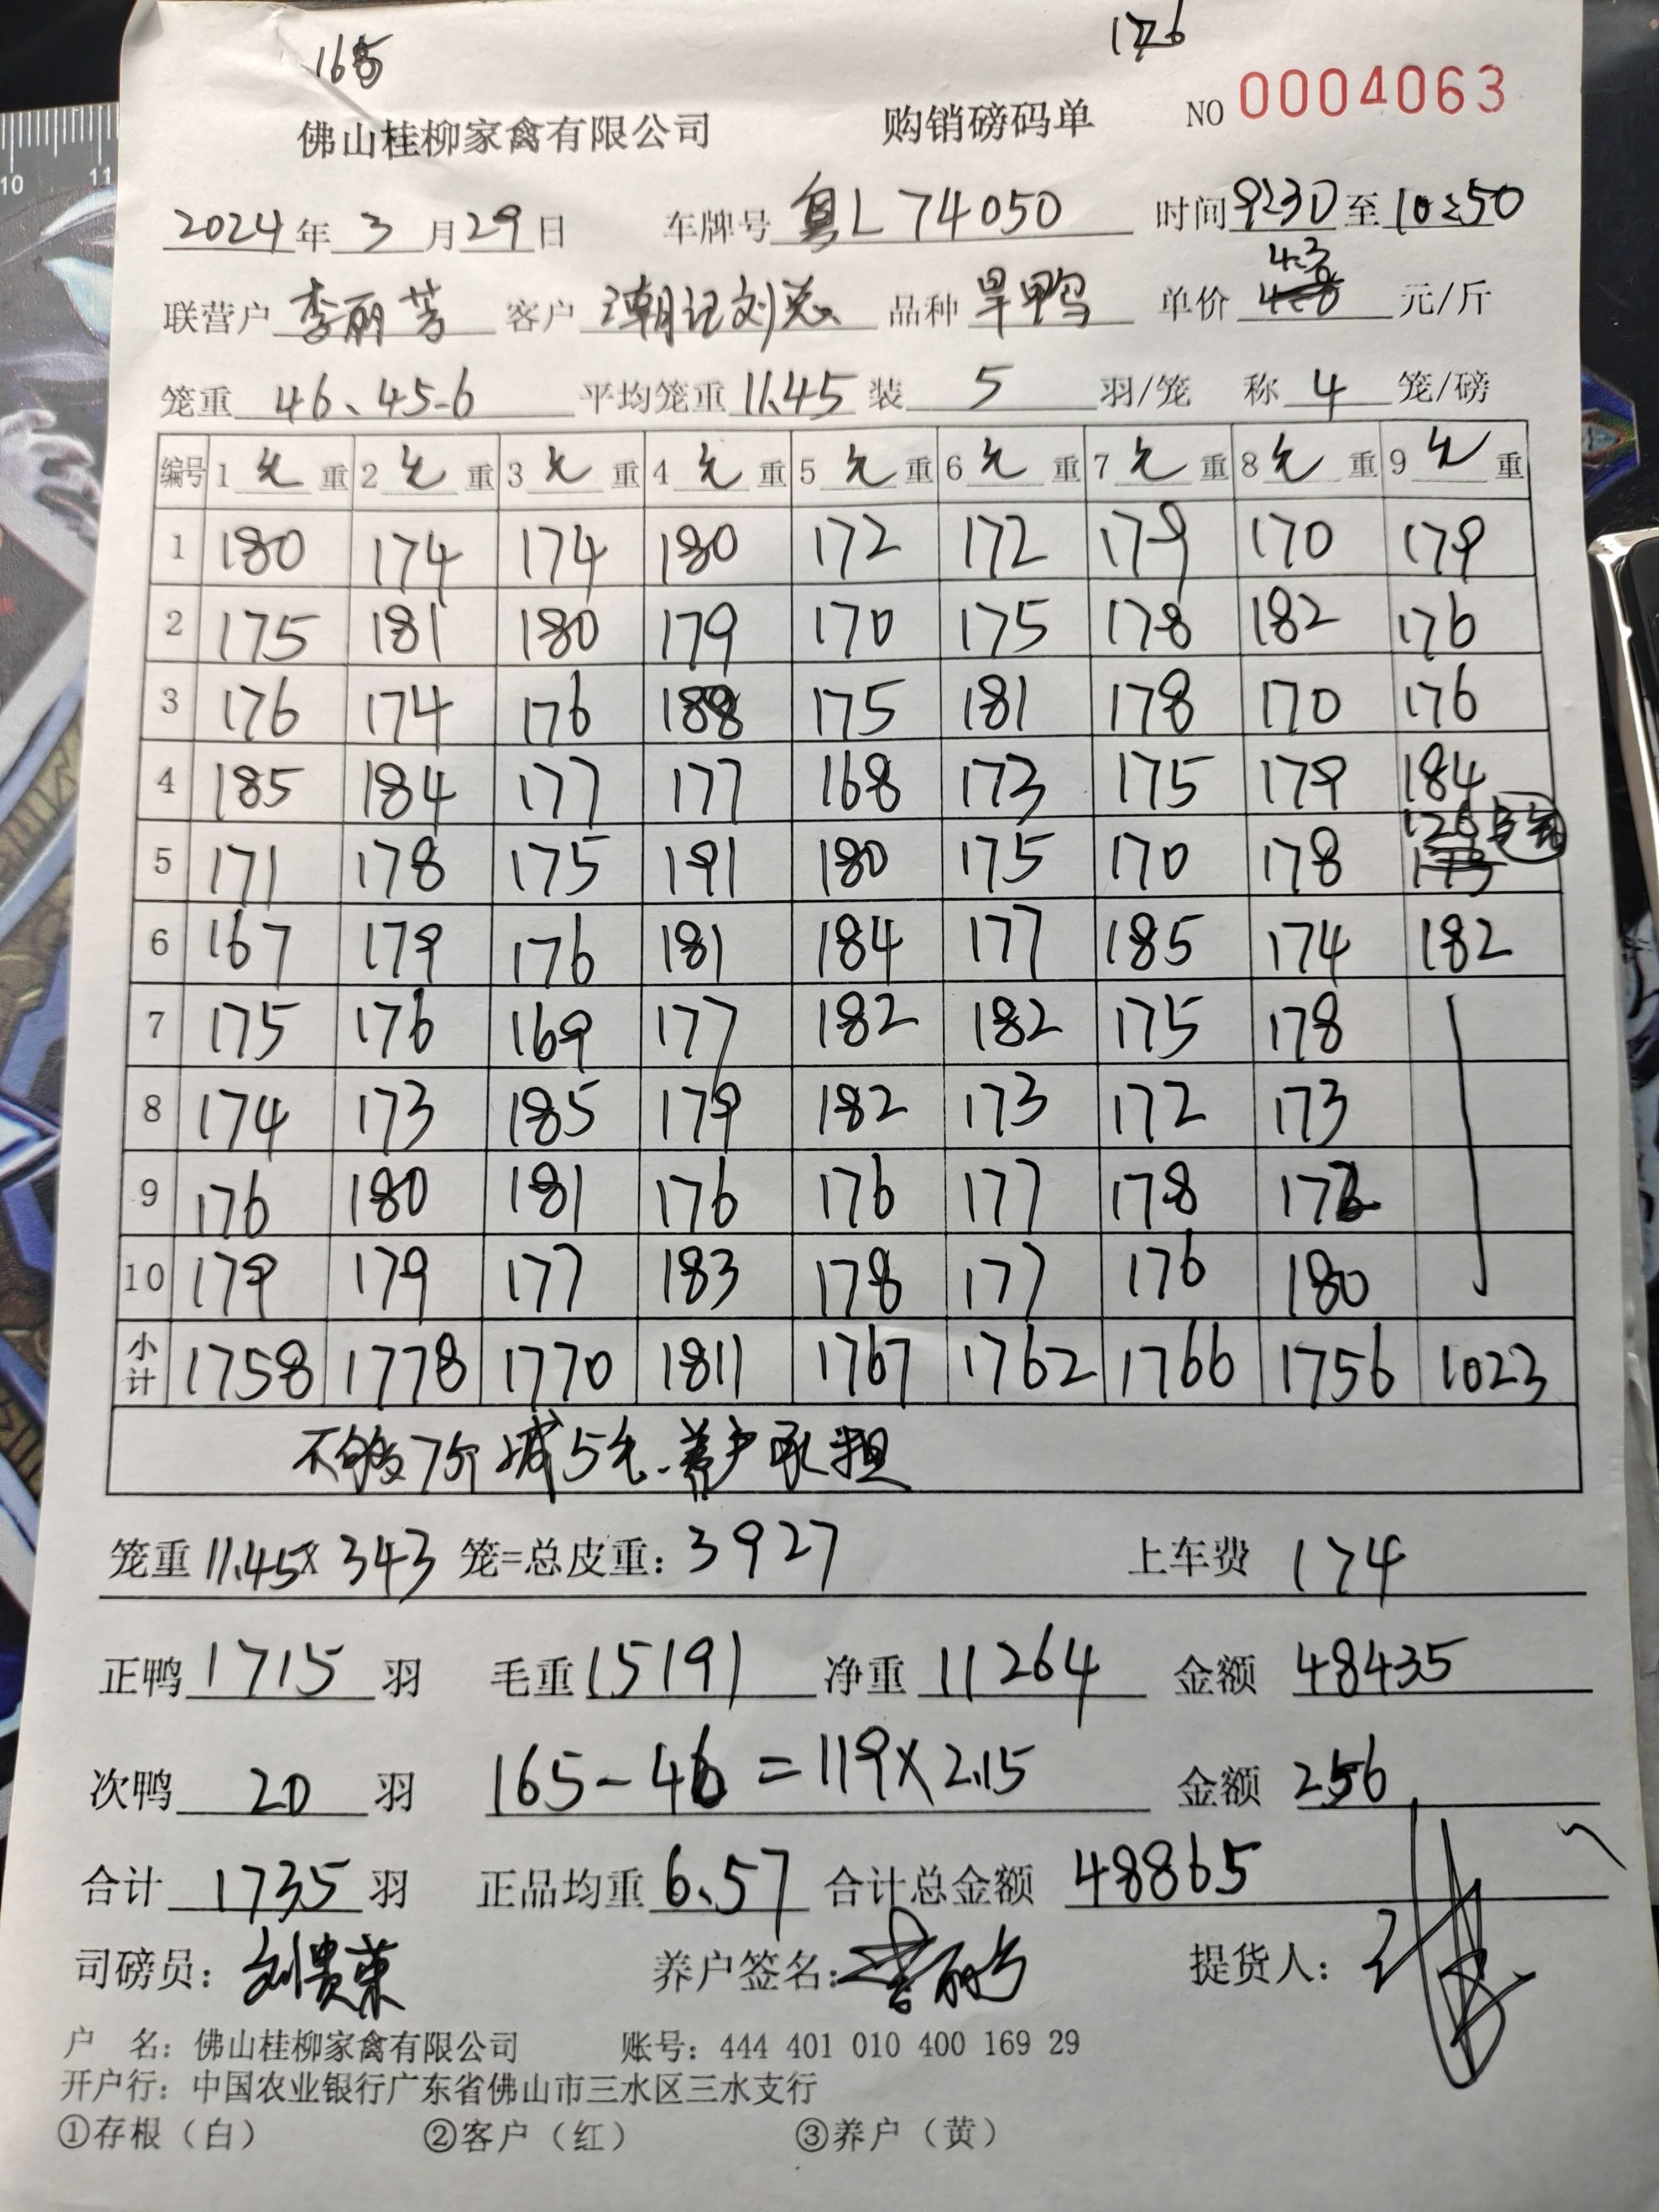 165 176
佛山桂柳家禽有限公司 购销磅码单 NO 0004063
2024年 3 月 29 日 车牌号 粤L 74050 时间 9:30 至 10:50
联营户 李丽芳 客户 潮记刘总 品种 旱鸭 单价 4.3 元/斤
笼重 46、45.6 平均笼重 11.45 装 5 羽/笼 称 4 笼/磅
编号 1 毛 重 2 毛 重 3 毛 重 4 毛 重 5 毛 重 6 毛 重 7 毛 重 8 毛 重 9 毛 重
1 180 174 174 180 172 172 179 170 179
2 175 181 180 179 170 175 178 182 176
3 176 174 176 188 175 181 178 170 176
4 185 184 177 177 168 173 175 179 184
5 171 178 175 191 180 175 170 178 126 173
6 167 179 176 181 184 177 185 174 182
7 175 176 169 177 182 182 175 178
8 174 173 185 179 182 173 172 173
9 176 180 181 176 176 177 178 172
10 179 179 177 183 178 177 176 180
小计 1758 1778 1770 1811 1767 1762 1766 1756 1023
不够7斤减5毛.养户承担
笼重 11.45 x 343 笼=总皮重: 3927 上车费 174
正鸭 1715 羽 毛重 15191 净重 11264 金额 48435
次鸭 20 羽 165-46=119×2.15 金额 256
合计 1735 羽 正品均重 6.57 合计总金额 48865
司磅员: 刘贵荣 养户签名: 李丽芳 提货人:
户 名: 佛山桂柳家禽有限公司 账号: 444 401 010 400 169 29
开户行: 中国农业银行广东省佛山市三水区三水支行
①存根（白） ②客户（红） ③养户（黄）